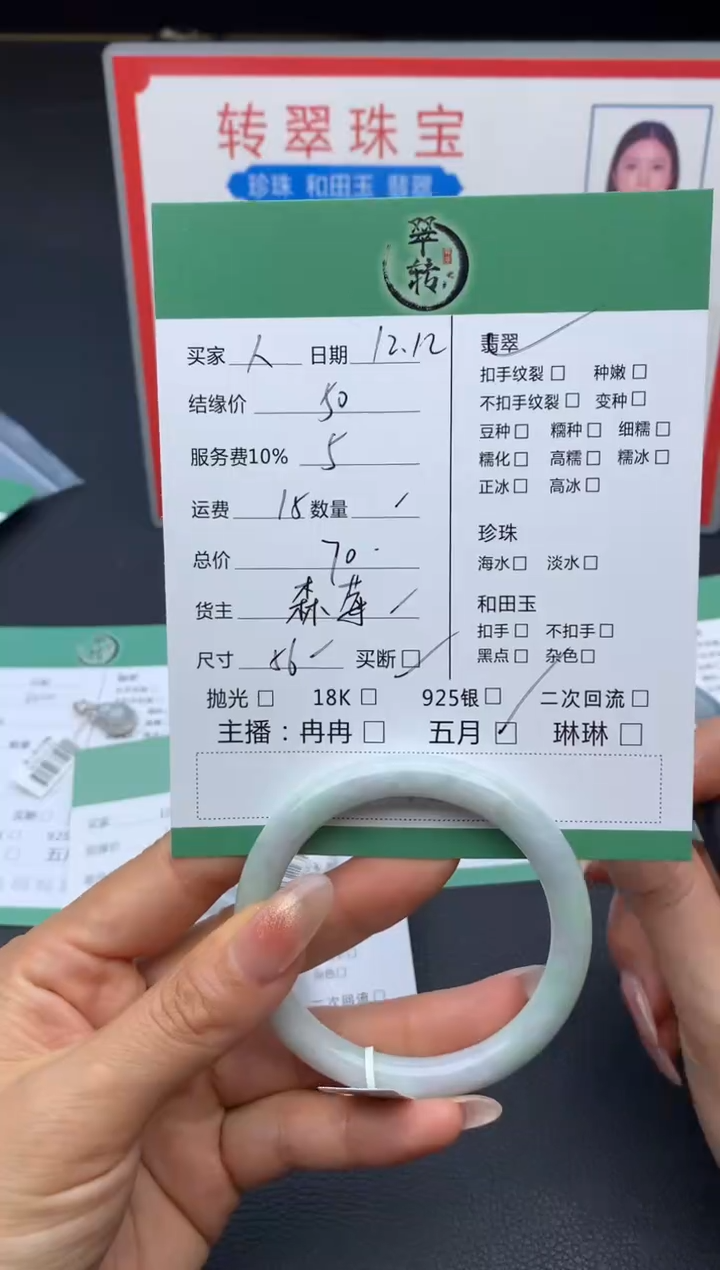 转翠珠宝
珍珠 和田玉 翡翠
翠
转
买家 人 日期 12.12
结缘价 50
服务费10% 5
运费 15 数量 ✓
总价 70.
货主 森莓
尺寸 56 买断☐
翡翠
扣手纹裂☐ 种嫩☐
不扣手纹裂☐ 变种☐
豆种☐ 糯种☐ 细糯☐
糯化☐ 高糯☐ 糯冰☐
正冰☐ 高冰☐
珍珠
海水☐ 淡水☐
和田玉
扣手☐ 不扣手☐
黑点☐ 杂色☐
抛光☐ 18K☐ 925银☐ 二次回流☐
主播：冉冉☐ 五月☑ 琳琳☐